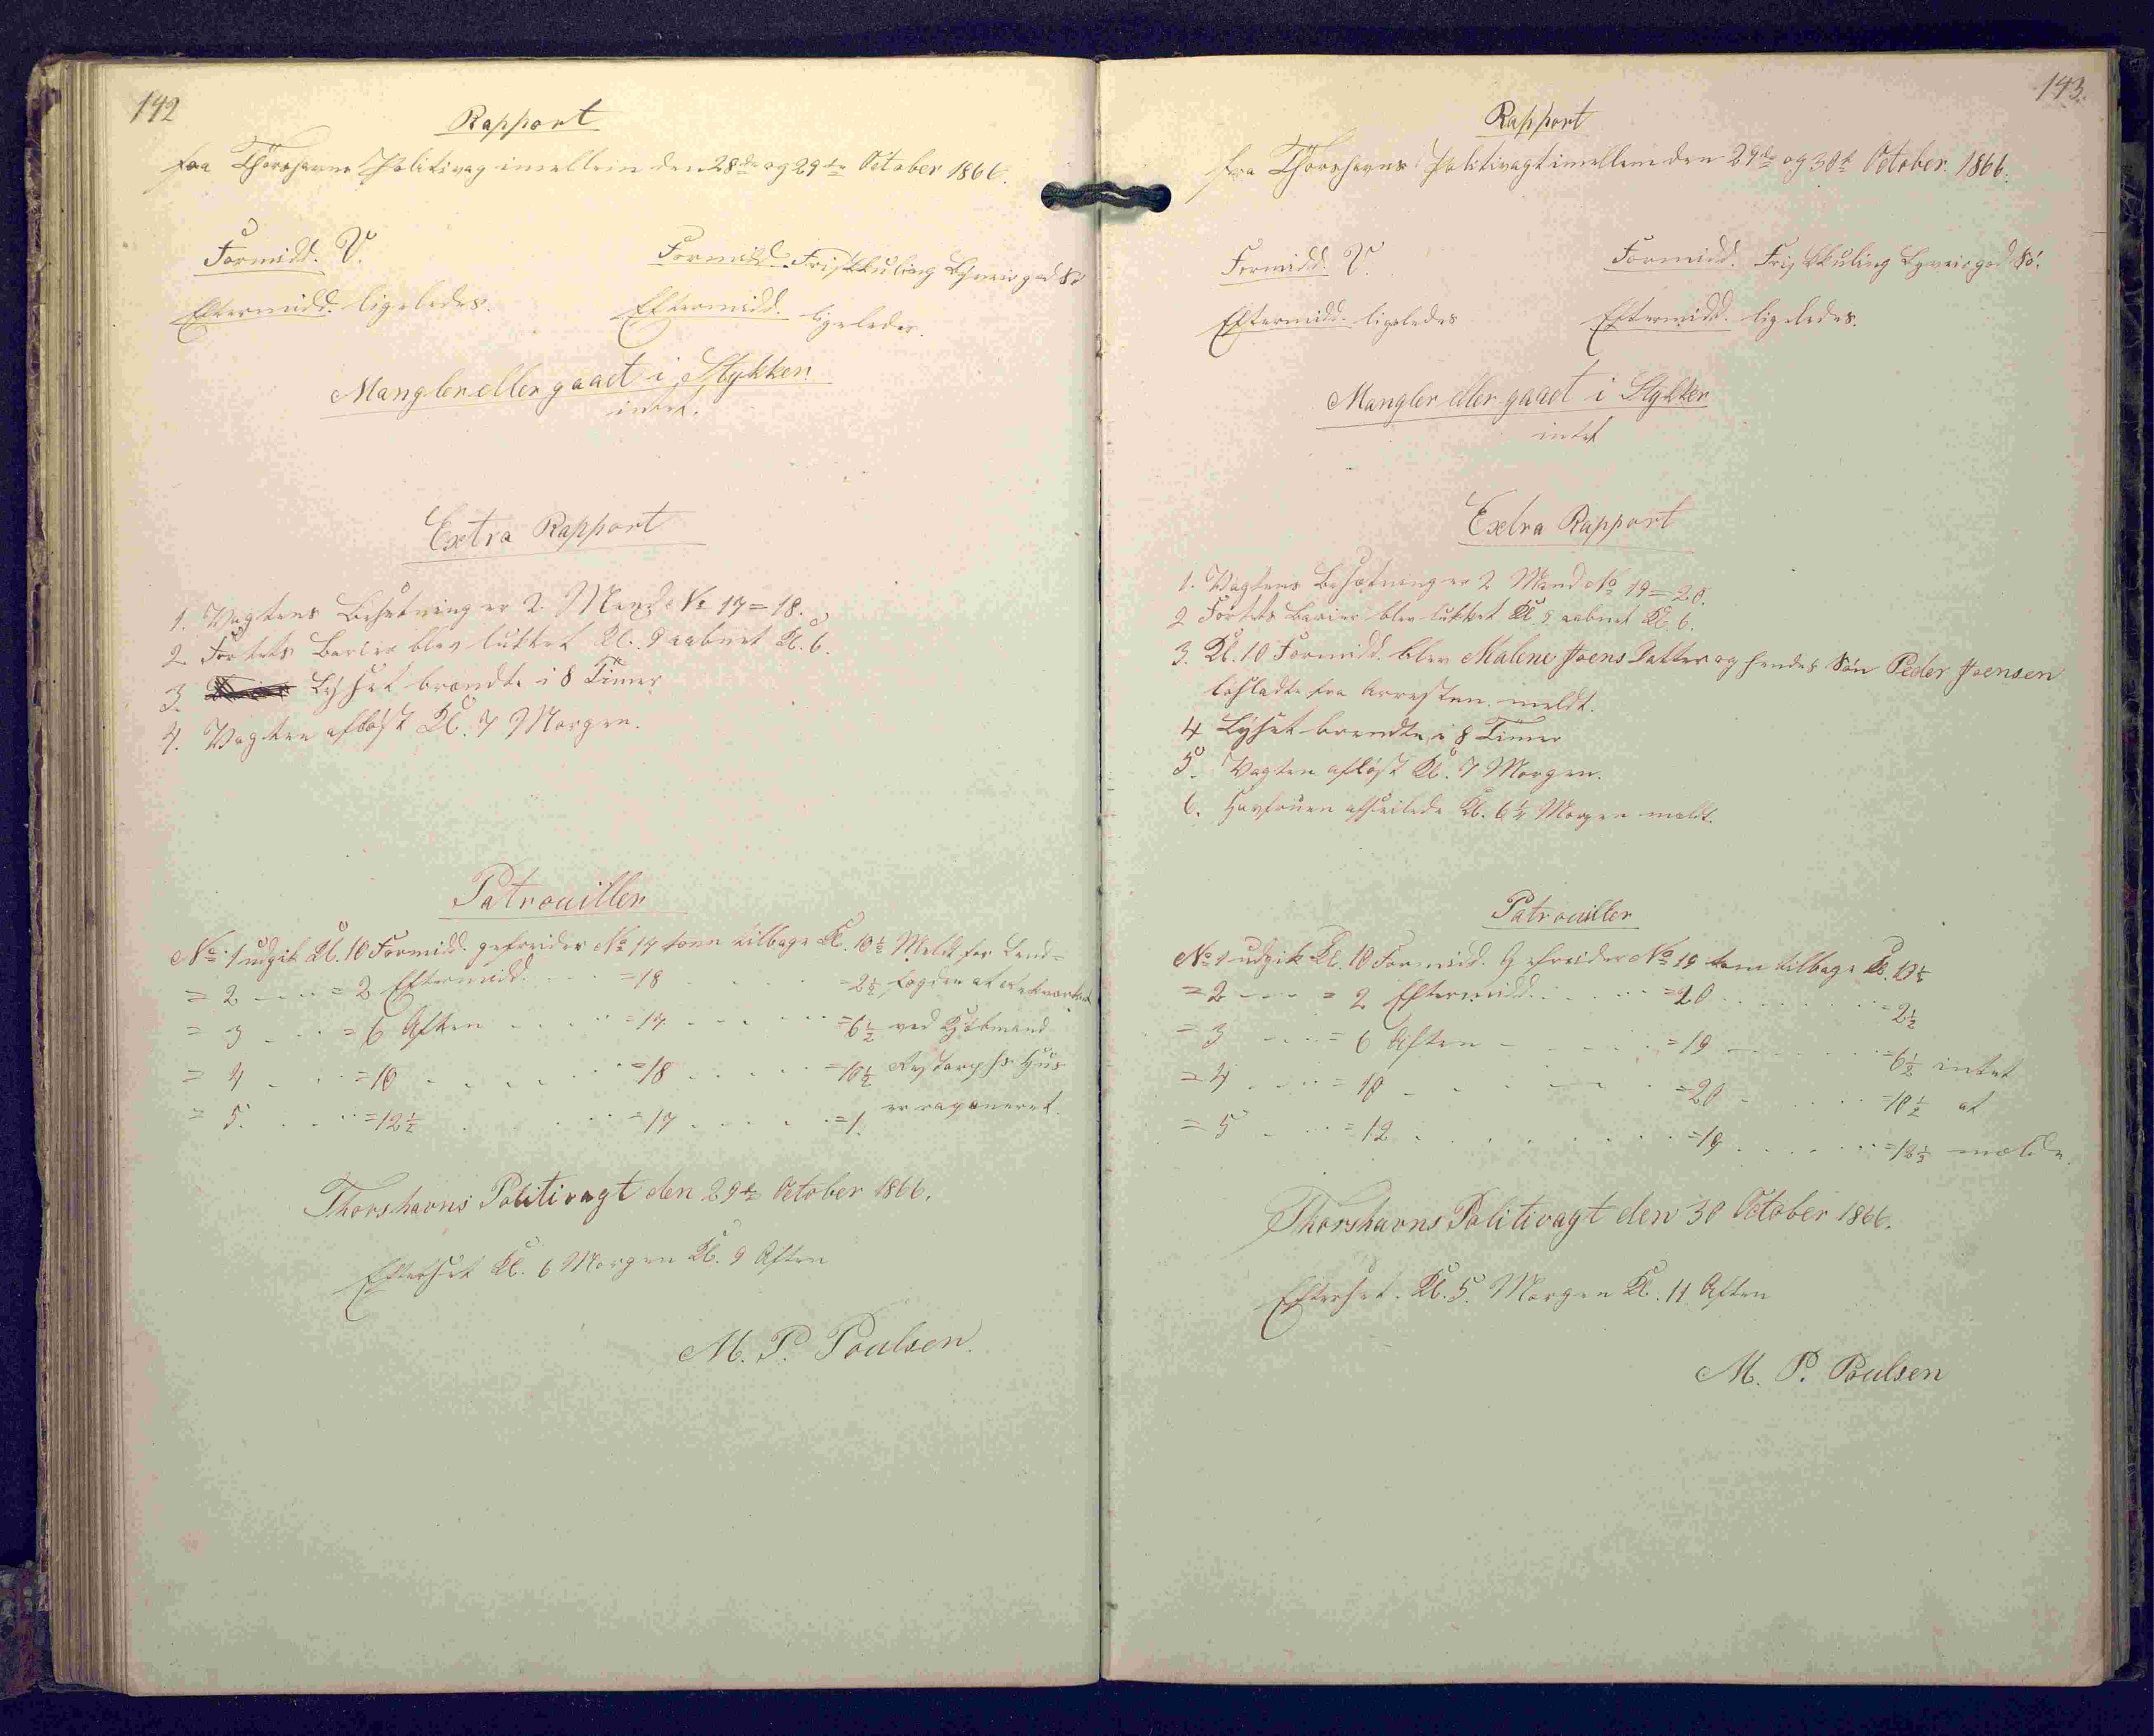 142
Rapport
fra Thorshavns Politivag imellem den 28de og 29de October 1866.
Formidd. V.
Formidd. Frisk Kuling Bÿveir god Sö
Eftermidd. ligeledes.
Eftermidd. ligeledes.
Mangler eller gaaet i Stykker.
intet.
Extra Rapport
1. Vagtens Besætning er 2. Mand No 17=18.
2. Fortets Barier blev lukket Kl. 9 aabnet Kl. 6.
3. Lÿset brændte i 8 Timer
4. Vagten aflöst Kl. 7 Morgen.
Patrouiller
No 1 udgik Kl. 10 Formidd. gefreider No 17 kom tilbage Kl. 10½ Meldt for Land=
= 2 - - .. = 2 Eftermidd. . . . =18 . . . . =2½ fogden at
= 3 . . .. = 6 Aften . . . .. =17 . . . .. =6½ ved Kjöbmand
= 4 . . .. =10 . . . . .. =18 . . . . =10½ Hus
= 5. . . .. =12½ . . . .. =17 . . . .. =1. er raparieret.
Thorshavns Politivagt den 29de October 1866.
Efterset Kl. 6 Morgen Kl. 9 Aften
M. P. Poulsen.
143.
Rapport
fra Thorshavns Politivagt imellem den 29de og 30te October. 1866.
Formidd. V.
Formidd. Frisk Kuling Byveir god Sö.
Eftermidd. ligeledes
Eftermidd. ligeledes.
Mangler eller gaaet i Stykker
intet
Extra Rapport
1. Vagtens Besætning er 2 Mand No 19=20.
2 Fortets Barier blev lukket Kl. 9 aabnet Kl. 6.
3. Kl. 10 Formidd. blev Malene Joens Datter og hendes Sön Peder Joensen
lösladte fra Arresten. meldt.
4 Lÿset brændte i 8 Timer
5. Vagten aflöst Kl. 7 Morgen.
6. Havfruen afseilede Kl. 6½ Morgen meldt.
Patrouiller
No 1 udgik Kl. 10 Formidd. Gefreider No 19 kom tilbage Kl. 10½
= 2 - - .. = 2 Eftermidd. . . . .. =20 . . . . .. =2½
= 3 - - .. = 6 Aften - - . . .. =19 - . . . .. =6½ intet
= 4 . . .. = 10 . . . . . =20 . . . . .. =10½ at
= 5 . . .. = 12 . . . . . . .. =19 . . . . .. =12½ melde.
Thorshavns Politivagt den 30 October 1866.
Efterset. Kl. 5. Morgen Kl. 11 Aften
M. P. Poulsen